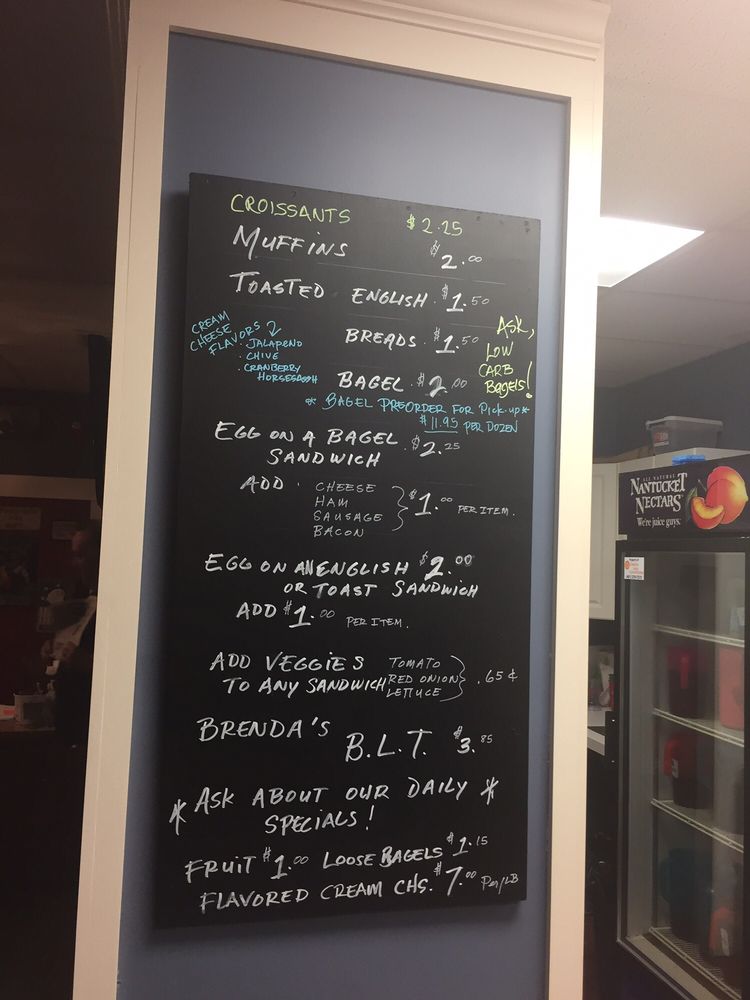 CROISSANTS $2.25
MUFFINS $2.00
TOASTED ENGLISH $1.50
BREADS $1.50
BAGEL $2.00
CREAM
CHEESE
FLAVORS
· JALAPENO
· CHIVE
· CRANBERRY
HORSE
ASK,
LOW
CARB
BAGELS!
* BAGEL PREORDER FOR Pick-up *
$11.95 PER DOZEN
EGG ON A BAGEL $2.25
SANDWICH
ADD · CHEESE
HAM
SAUSAGE
BACON
$1.00 PER ITEM.
EGG ON AN ENGLISH $2.00
OR TOAST SANDWICH
ADD $1.00 PER ITEM.
ADD VEGGIES TOMATO
TO ANY SANDWICH RED ONION
LETTUCE
.65¢
BRENDA'S
B.L.T. $3.85
* ASK ABOUT OUR DAILY *
SPECIALS!
FRUIT $1.00 LOOSE BAGELS $1.15
FLAVORED CREAM CHS. $7.00 Per/LB
ALL NATURAL
NANTUCKET
NECTARS
We're juice guys.